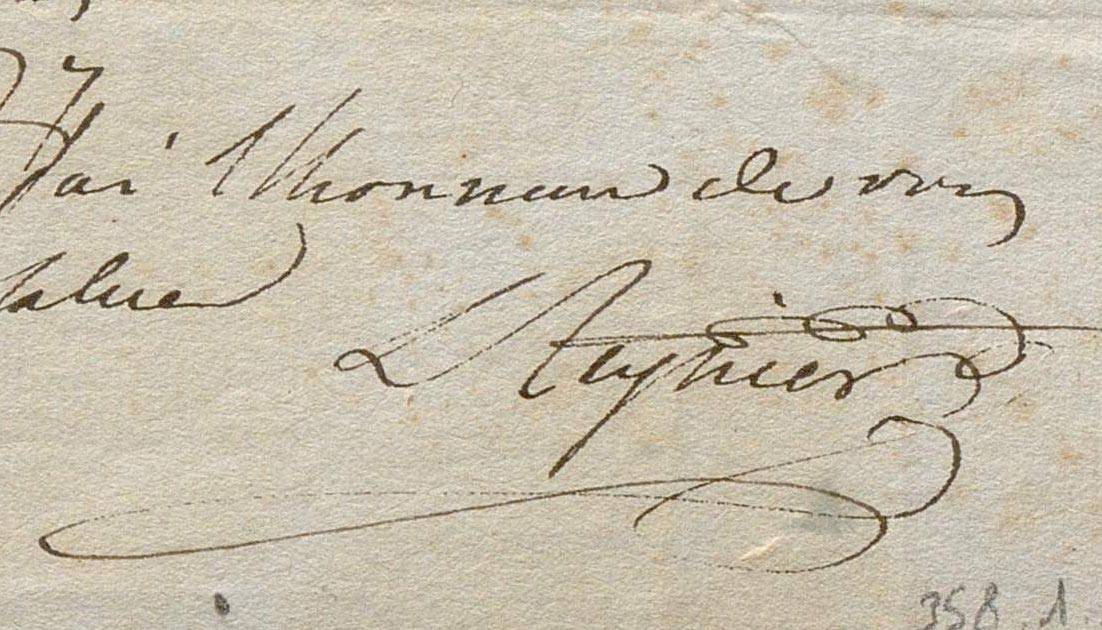 J'ai l'honneur de vous
saluer
L Reynier
358. 1.